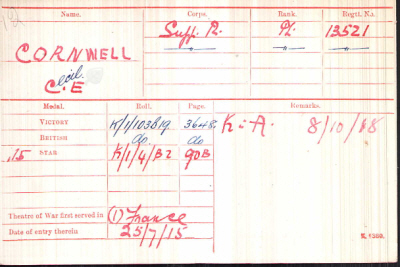 Name. Corps. Rank. Regtl. No.
CORNWELL Suff. R. Pte 13521
Cecil
C. E
Medal. Roll. Page. Remarks.
VICTORY K/1/103B19 3648. K. i. A. 8/10/18
BRITISH do do
15 STAR K/1/4/B2 90B
Theatre of War first served in (1) France
Date of entry therein 25/7/15
K 1380.